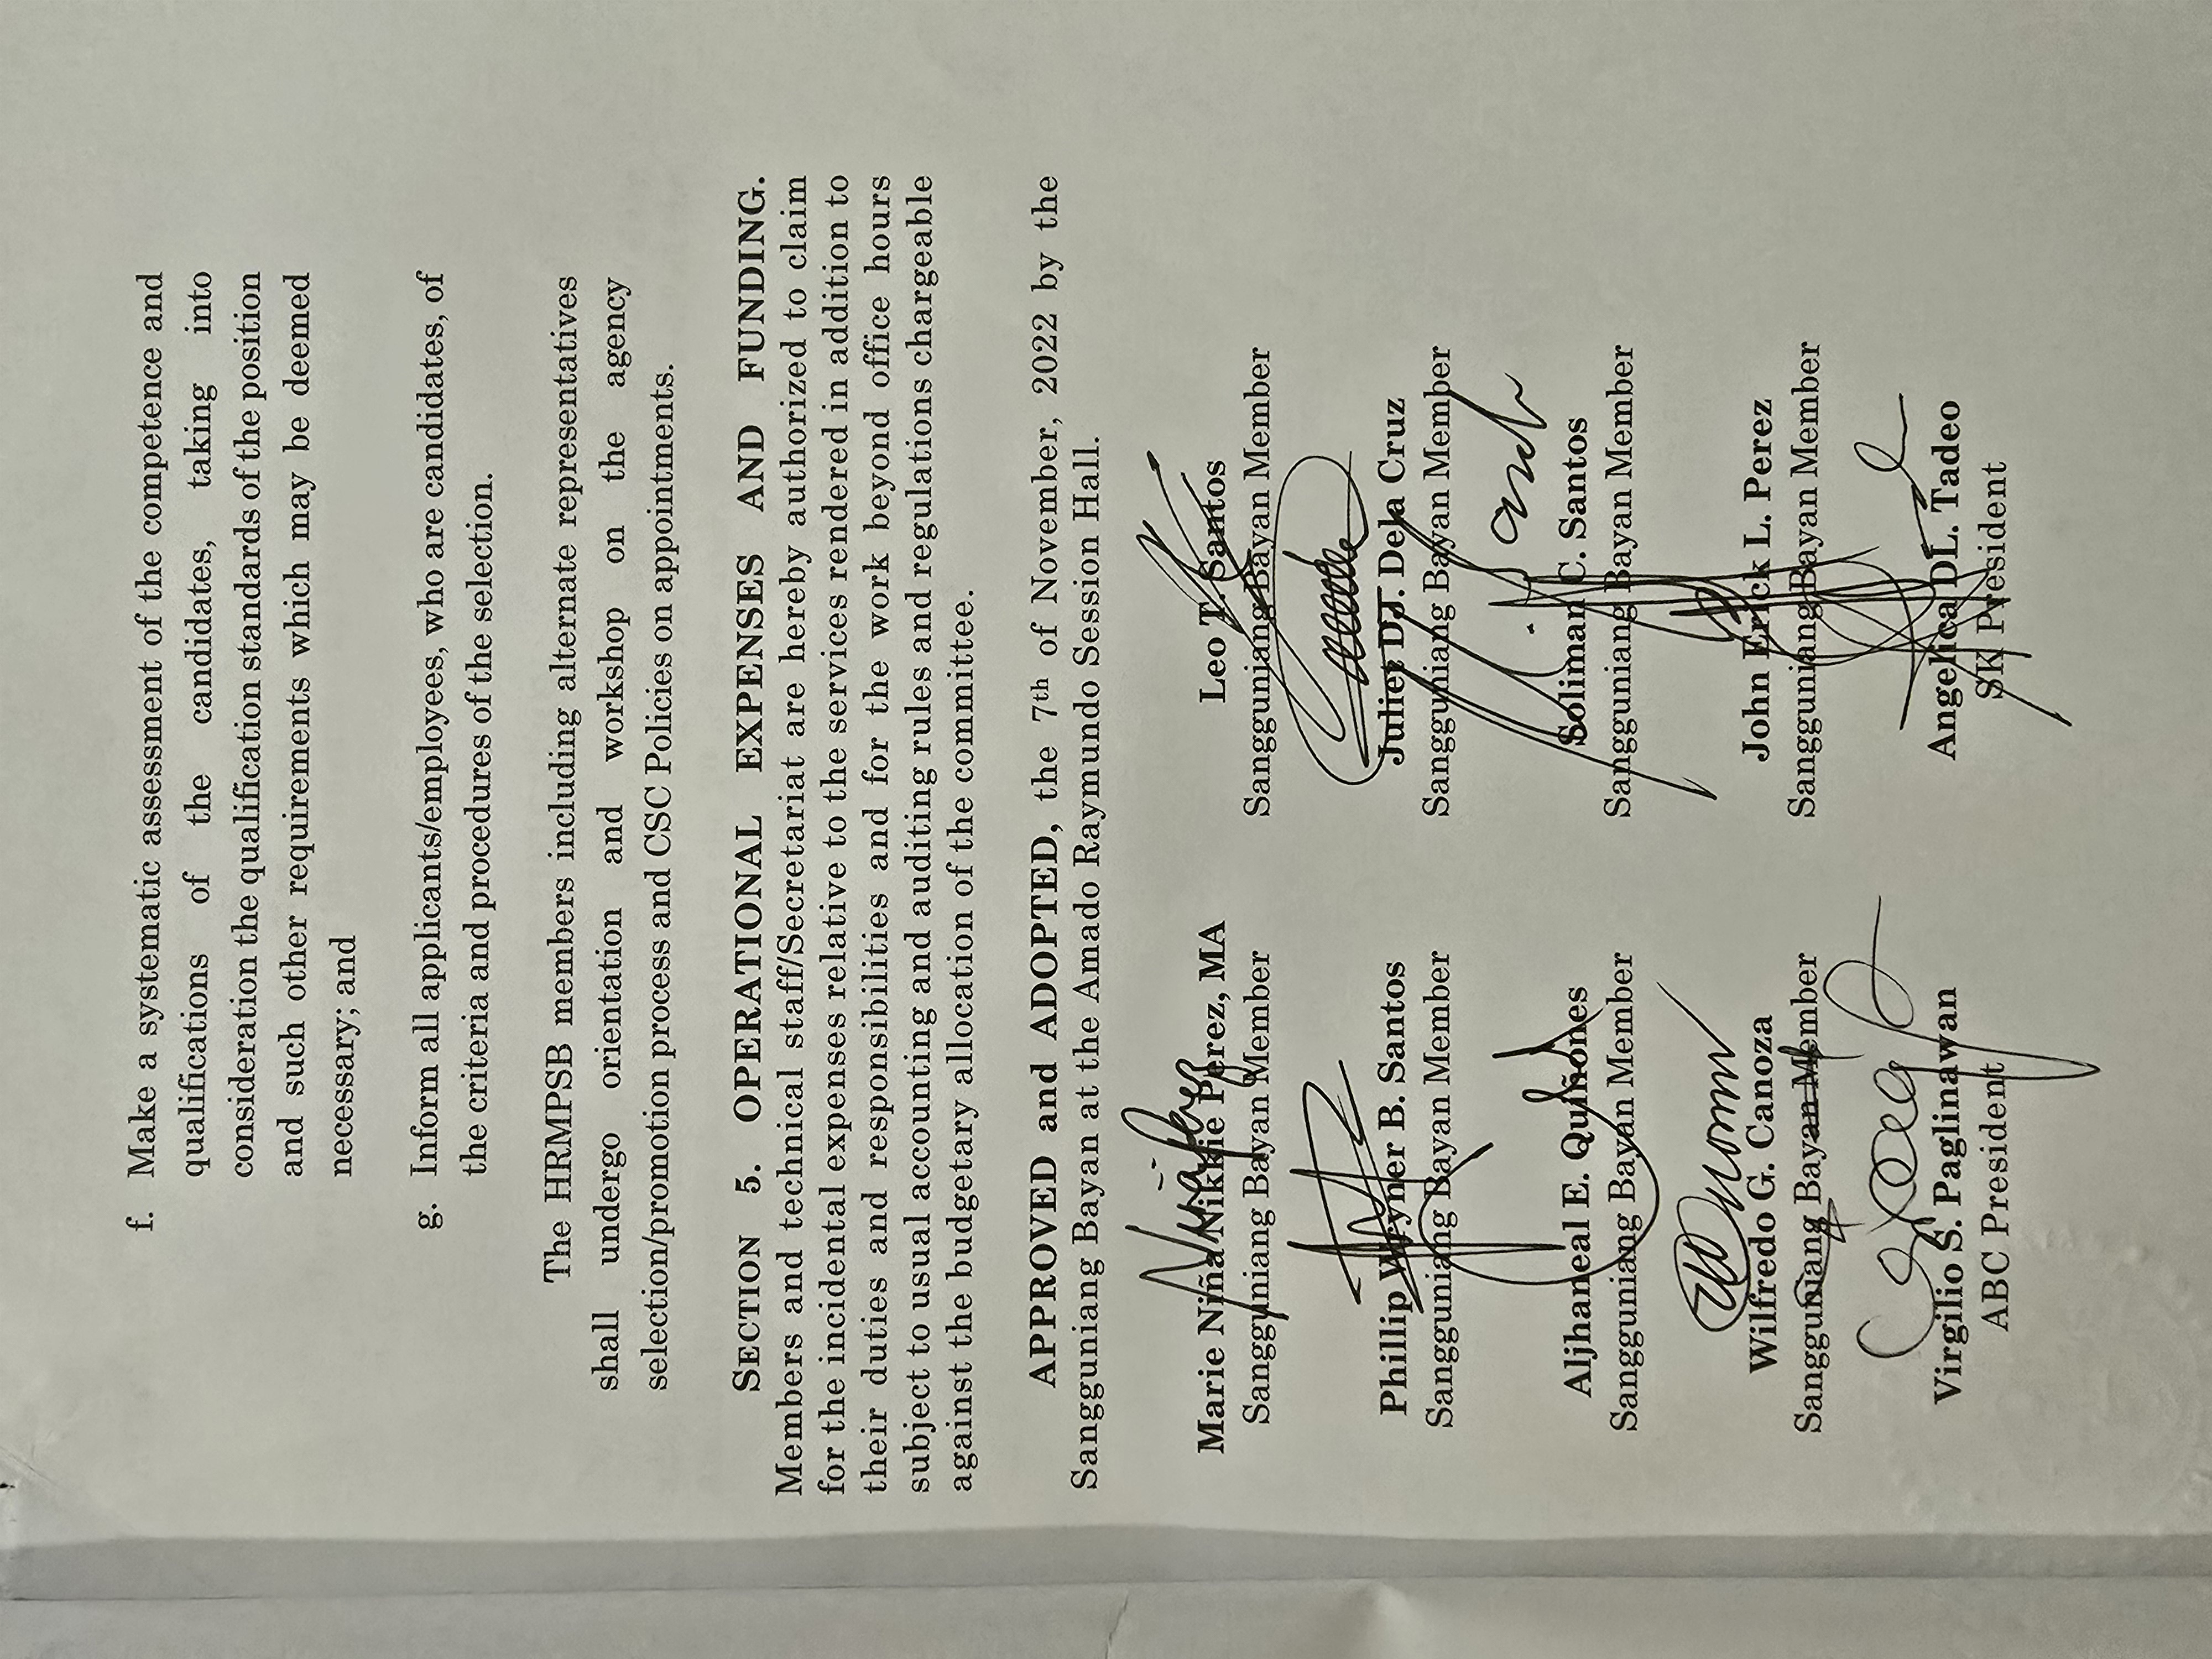 f. Make a systematic assessment of the competence and
qualifications of the candidates, taking into
consideration the qualification standards of the position
and such other requirements which may be deemed
necessary; and
g. Inform all applicants/employees, who are candidates, of
the criteria and procedures of the selection.
The HRMPSB members including alternate representatives
shall undergo orientation and workshop on the agency
selection/promotion process and CSC Policies on appointments.
SECTION 5. OPERATIONAL EXPENSES AND FUNDING.
Members and technical staff/Secretariat are hereby authorized to claim
for the incidental expenses relative to the services rendered in addition to
their duties and responsibilities and for the work beyond office hours
subject to usual accounting and auditing rules and regulations chargeable
against the budgetary allocation of the committee.
APPROVED and ADOPTED, the 7th of November, 2022 by the
Sangguniang Bayan at the Amado Raymundo Session Hall.
Marie Niña Nikkie Perez, MA
Sangguniang Bayan Member
Leo T. Santos
Sangguniang Bayan Member
Phillip Wyner B. Santos
Sangguniang Bayan Member
Juliet DJ. Dela Cruz
Sangguniang Bayan Member
Aljhaneal E. Quiñones
Sangguniang Bayan Member
Soliman C. Santos
Sangguniang Bayan Member
Wilfredo G. Canoza
Sangguniang Bayan Member
John Erick L. Perez
Sangguniang Bayan Member
Virgilio S. Paglinawan
ABC President
Angelica DL. Tadeo
SK President